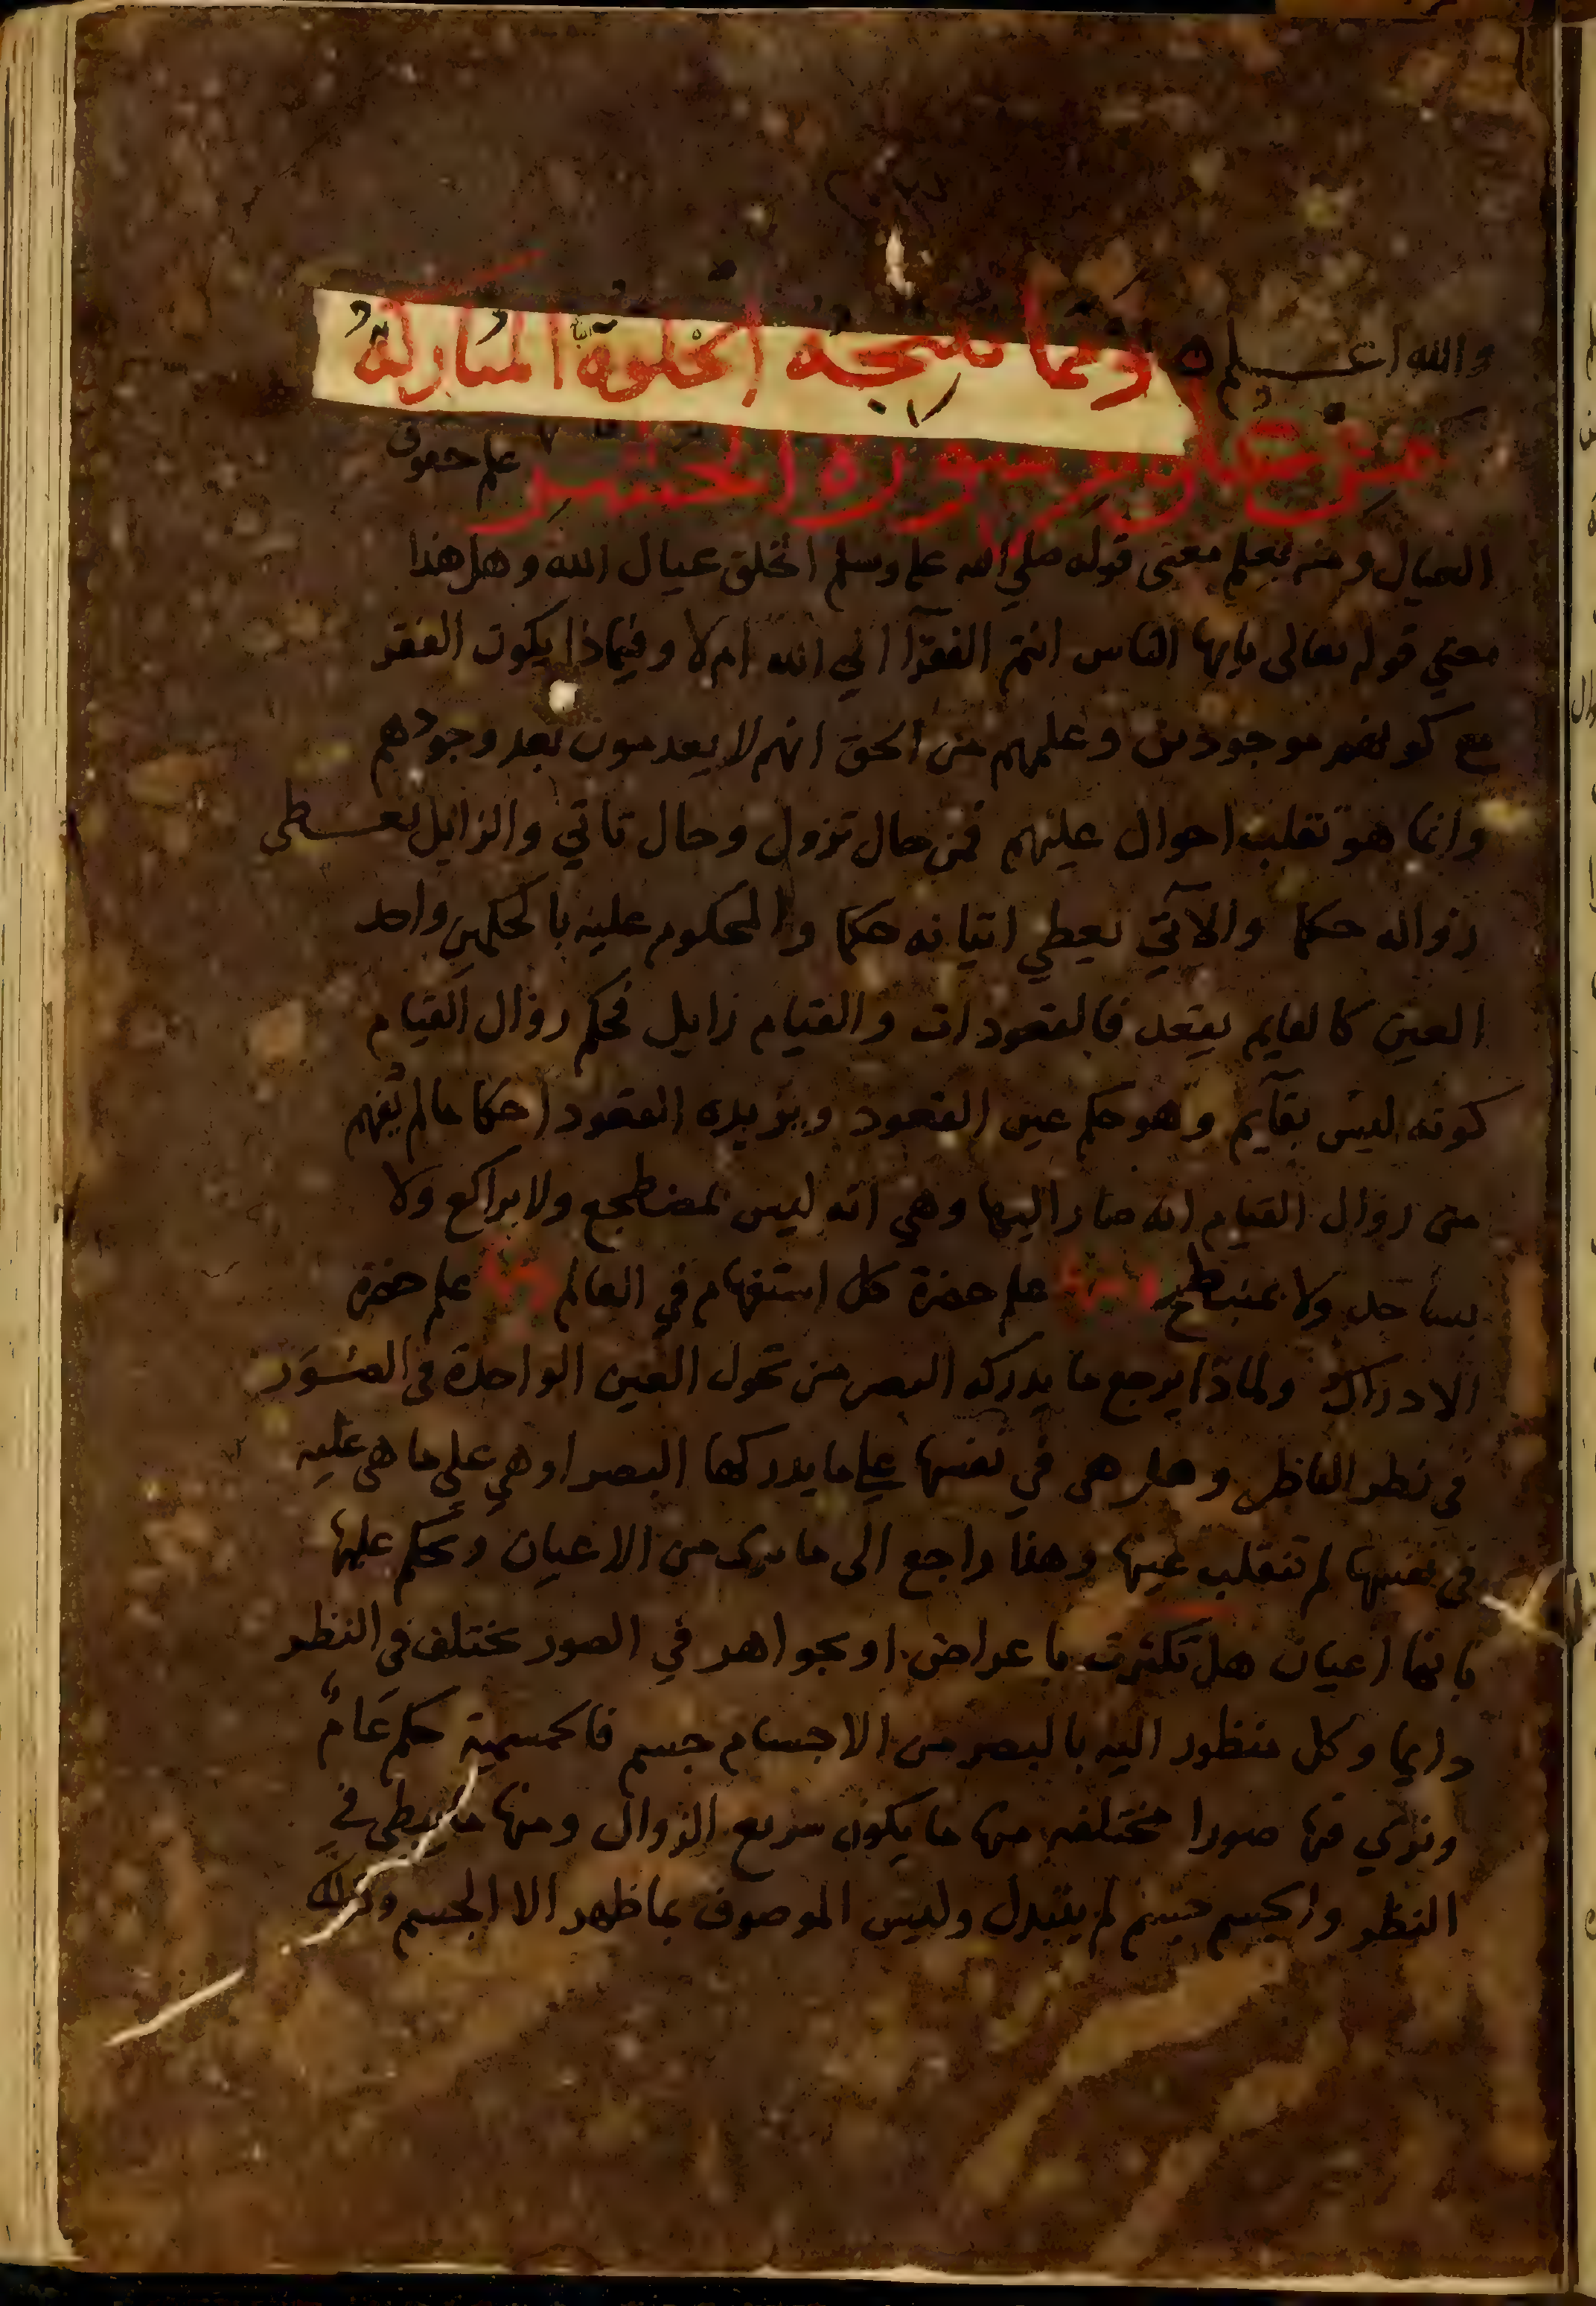 والله اعلم ومما تنتجه الخلوة المباركة
من علوم سورة الحشر علم حقوق
العيال ومنه يعلم معنى قوله صلى الله علم وسلم الخلق عيال الله وهل هذا
معنى قوله تعالى يايها الناس انتم الفقرآ الي الله ام لا وفيماذا يكون الفقر
مع كونهم موجودين وعلمهم من الحق انهم لا يعدمون بعد وجودهم
وانما هو تقلب احوال عليهم فمن حال تزول وحال تاتي والزايل يعطى
زواله حكما والآتي يعطي اتيانه حكما والمحكوم عليه بالحكمين واحد
العين كالقايم يقعد فالقعود ات والقيام زايل فحكم زوال القيام
كونه ليس بقآيم وهو حكم عين القعود ويزيده القعود احكاما لم تفهم
من زوال القيام انه صار اليها وهي انه ليس بمضطجع ولا براكع ولا
بساجد ولا بمنبطح علم حضرة كل استفهام في العالم علم حضرة
الادراك ولماذا يرجع ما يدركه البصر من تحول العين الواحدة في الصور
في نظر الناظر وهل هى في نفسها علي ما يدركها البصر او هي علي ما هى عليه
في نفسها لم تنقلب عينها وهذا راجع الى ما يرى من الاعيان ويحكم عليها
بانها اعيان هل تكثرت باعراض او بجواهر في الصور تختلف في النظر
دايما وكل منظور اليه بالبصر من الاجسام جسم فالجسمية حكم عام
ونرى فيها صورا مختلفه منها ما يكون سريع الزوال ومنها ما يبطي في
النظر والجسم جسم لم يتبدل وليس الموصوف بما ظهر الا الجسم وكذلك